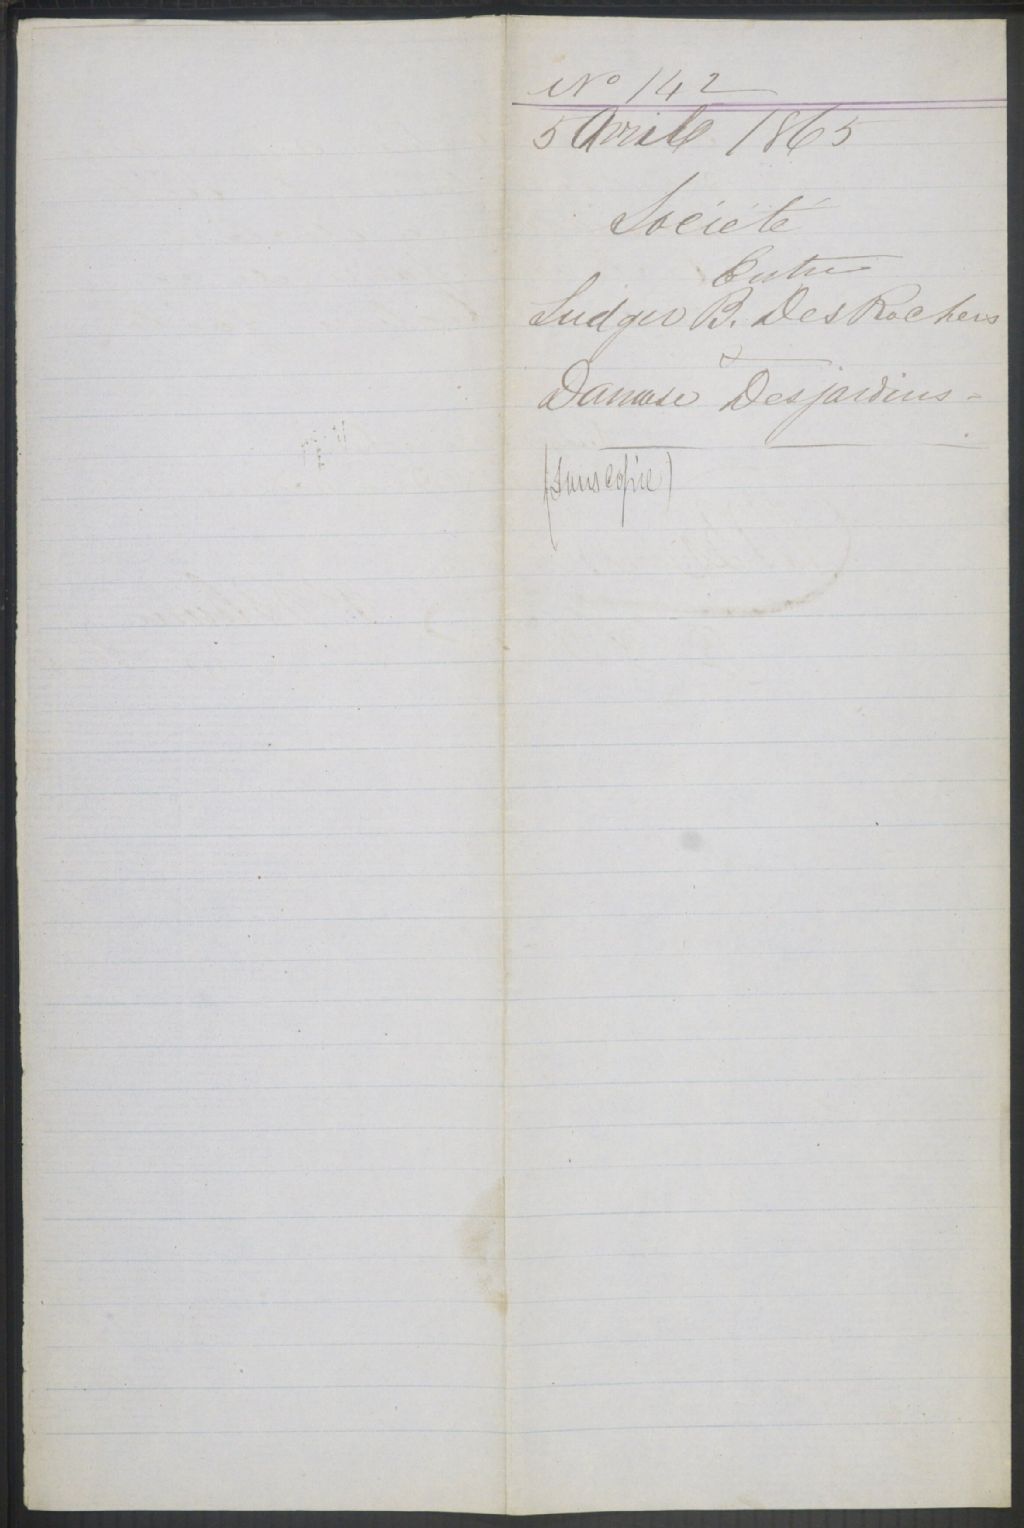 No 142
5 Avril 1865
Société
Entre
Ludger B. DesRochers
&
Damase Desjardins -
(sans copie)